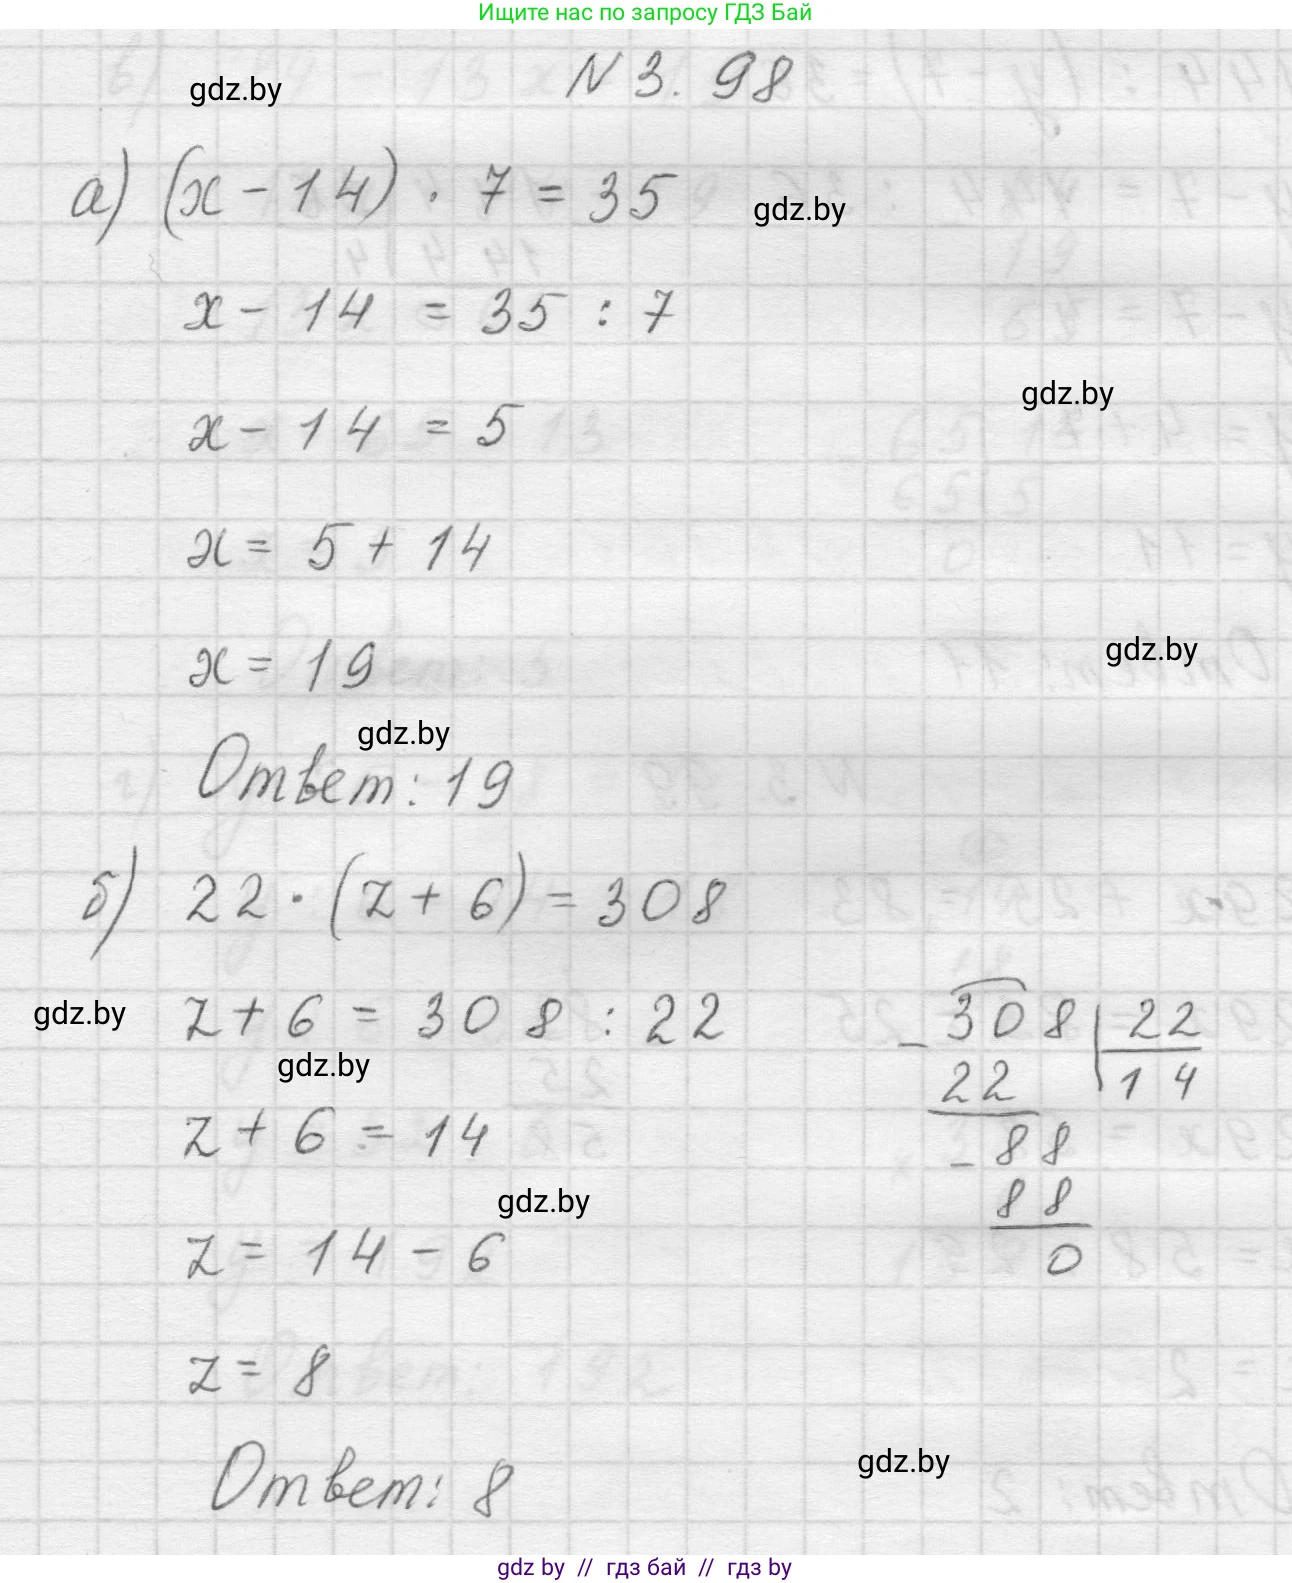 Ищите нас по запросу ГДЗ Бай
N 3. 98
gdz.by
а) (x - 14) · 7 = 35
gdz.by
x - 14 = 35 : 7
gdz.by
x - 14 = 5
x = 5 + 14
x = 19
gdz.by
gdz.by
Ответ: 19
б) 22 · (z + 6) = 308
z + 6 = 308 : 22
gdz.by
gdz.by
z + 6 = 14
gdz.by
z = 14 - 6
z = 8
Ответ: 8
gdz.by
- 308 | 22
22 14
- 88
88
0
gdz by // гдз бай // гдз by